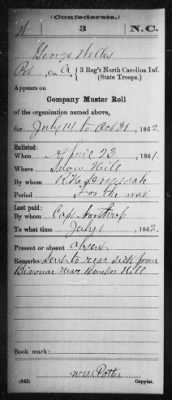 (Confederate.)
W 3 N.C.
George Welles
Pvt, Co. A, 3 Reg't North Carolina Inf.
(State Troops.)
Appears on
Company Muster Roll
of the organization named above,
for July 1st to Oct 31, 1862.
Enlisted:
When April 23, 1861.
Where Snow Hill
By whom
Period For the war
Last paid:
By whom Capt Northrop
To what time July 1, 1862.
Present or absent absent
Remarks: Sent to rear sick from
Bivouac near Bunker Hill
Book mark:
(642) Copyist.